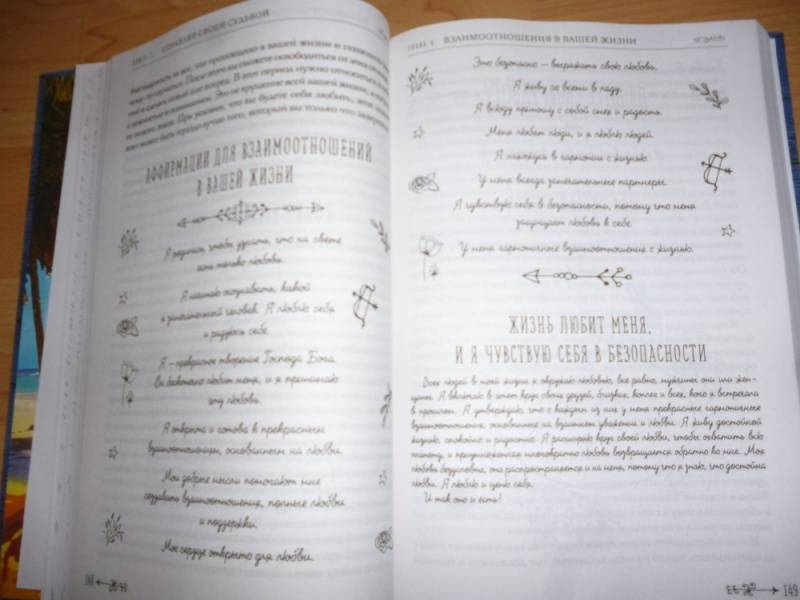 УПРАВЛЯЙ СВОЕЙ СУДЬБОЙ
АФФИРМАЦИИ ДЛЯ ВЗАИМООТНОШЕНИЙ
В ВАШЕЙ ЖИЗНИ
Я родилась, чтобы узнать, что на свете
есть только любовь.
Я начинаю осознавать, какой
я замечательный человек. Я люблю себя
и радуюсь себе.
Я — прекрасное творение Господа Бога.
Он бесконечно любит меня, и я принимаю
эту любовь.
Я открыта и готова к прекрасным
взаимоотношениям, основанным на любви.
Мои добрые мысли помогают мне
создавать взаимоотношения, полные любви
и поддержки.
Мое сердце открыто для любви.
148
ГЛАВА 4. ВЗАИМООТНОШЕНИЯ В ВАШЕЙ ЖИЗНИ
Это безопасно — выражать свою любовь.
Я живу со всеми в ладу.
Я всюду приношу с собой смех и радость.
Меня любят люди, и я люблю людей.
Я нахожусь в гармонии с жизнью.
У меня всегда замечательные партнеры.
Я чувствую себя в безопасности, потому что меня
защищает любовь к себе.
У меня гармоничные взаимоотношения с жизнью.
ЖИЗНЬ ЛЮБИТ МЕНЯ,
И Я ЧУВСТВУЮ СЕБЯ В БЕЗОПАСНОСТИ
Всех людей в моей жизни я окружаю любовью, все равно, мужчины они или жен-
щины. Я включаю в этот круг своих друзей, близких, коллег и всех, кого я встречала
в прошлом. Я утверждаю, что с каждым из них у меня прекрасные гармоничные
взаимоотношения, основанные на взаимном уважении и любви. Я живу достойной
жизнью, спокойно и радостно. Я расширяю круг своей любви, чтобы охватить всю
планету, и приумноженная многократно любовь возвращается обратно ко мне. Моя
любовь безусловна, она распространяется и на меня, потому что я знаю, что достойна
любви. Я люблю и ценю себя.
И так оно и есть!
149